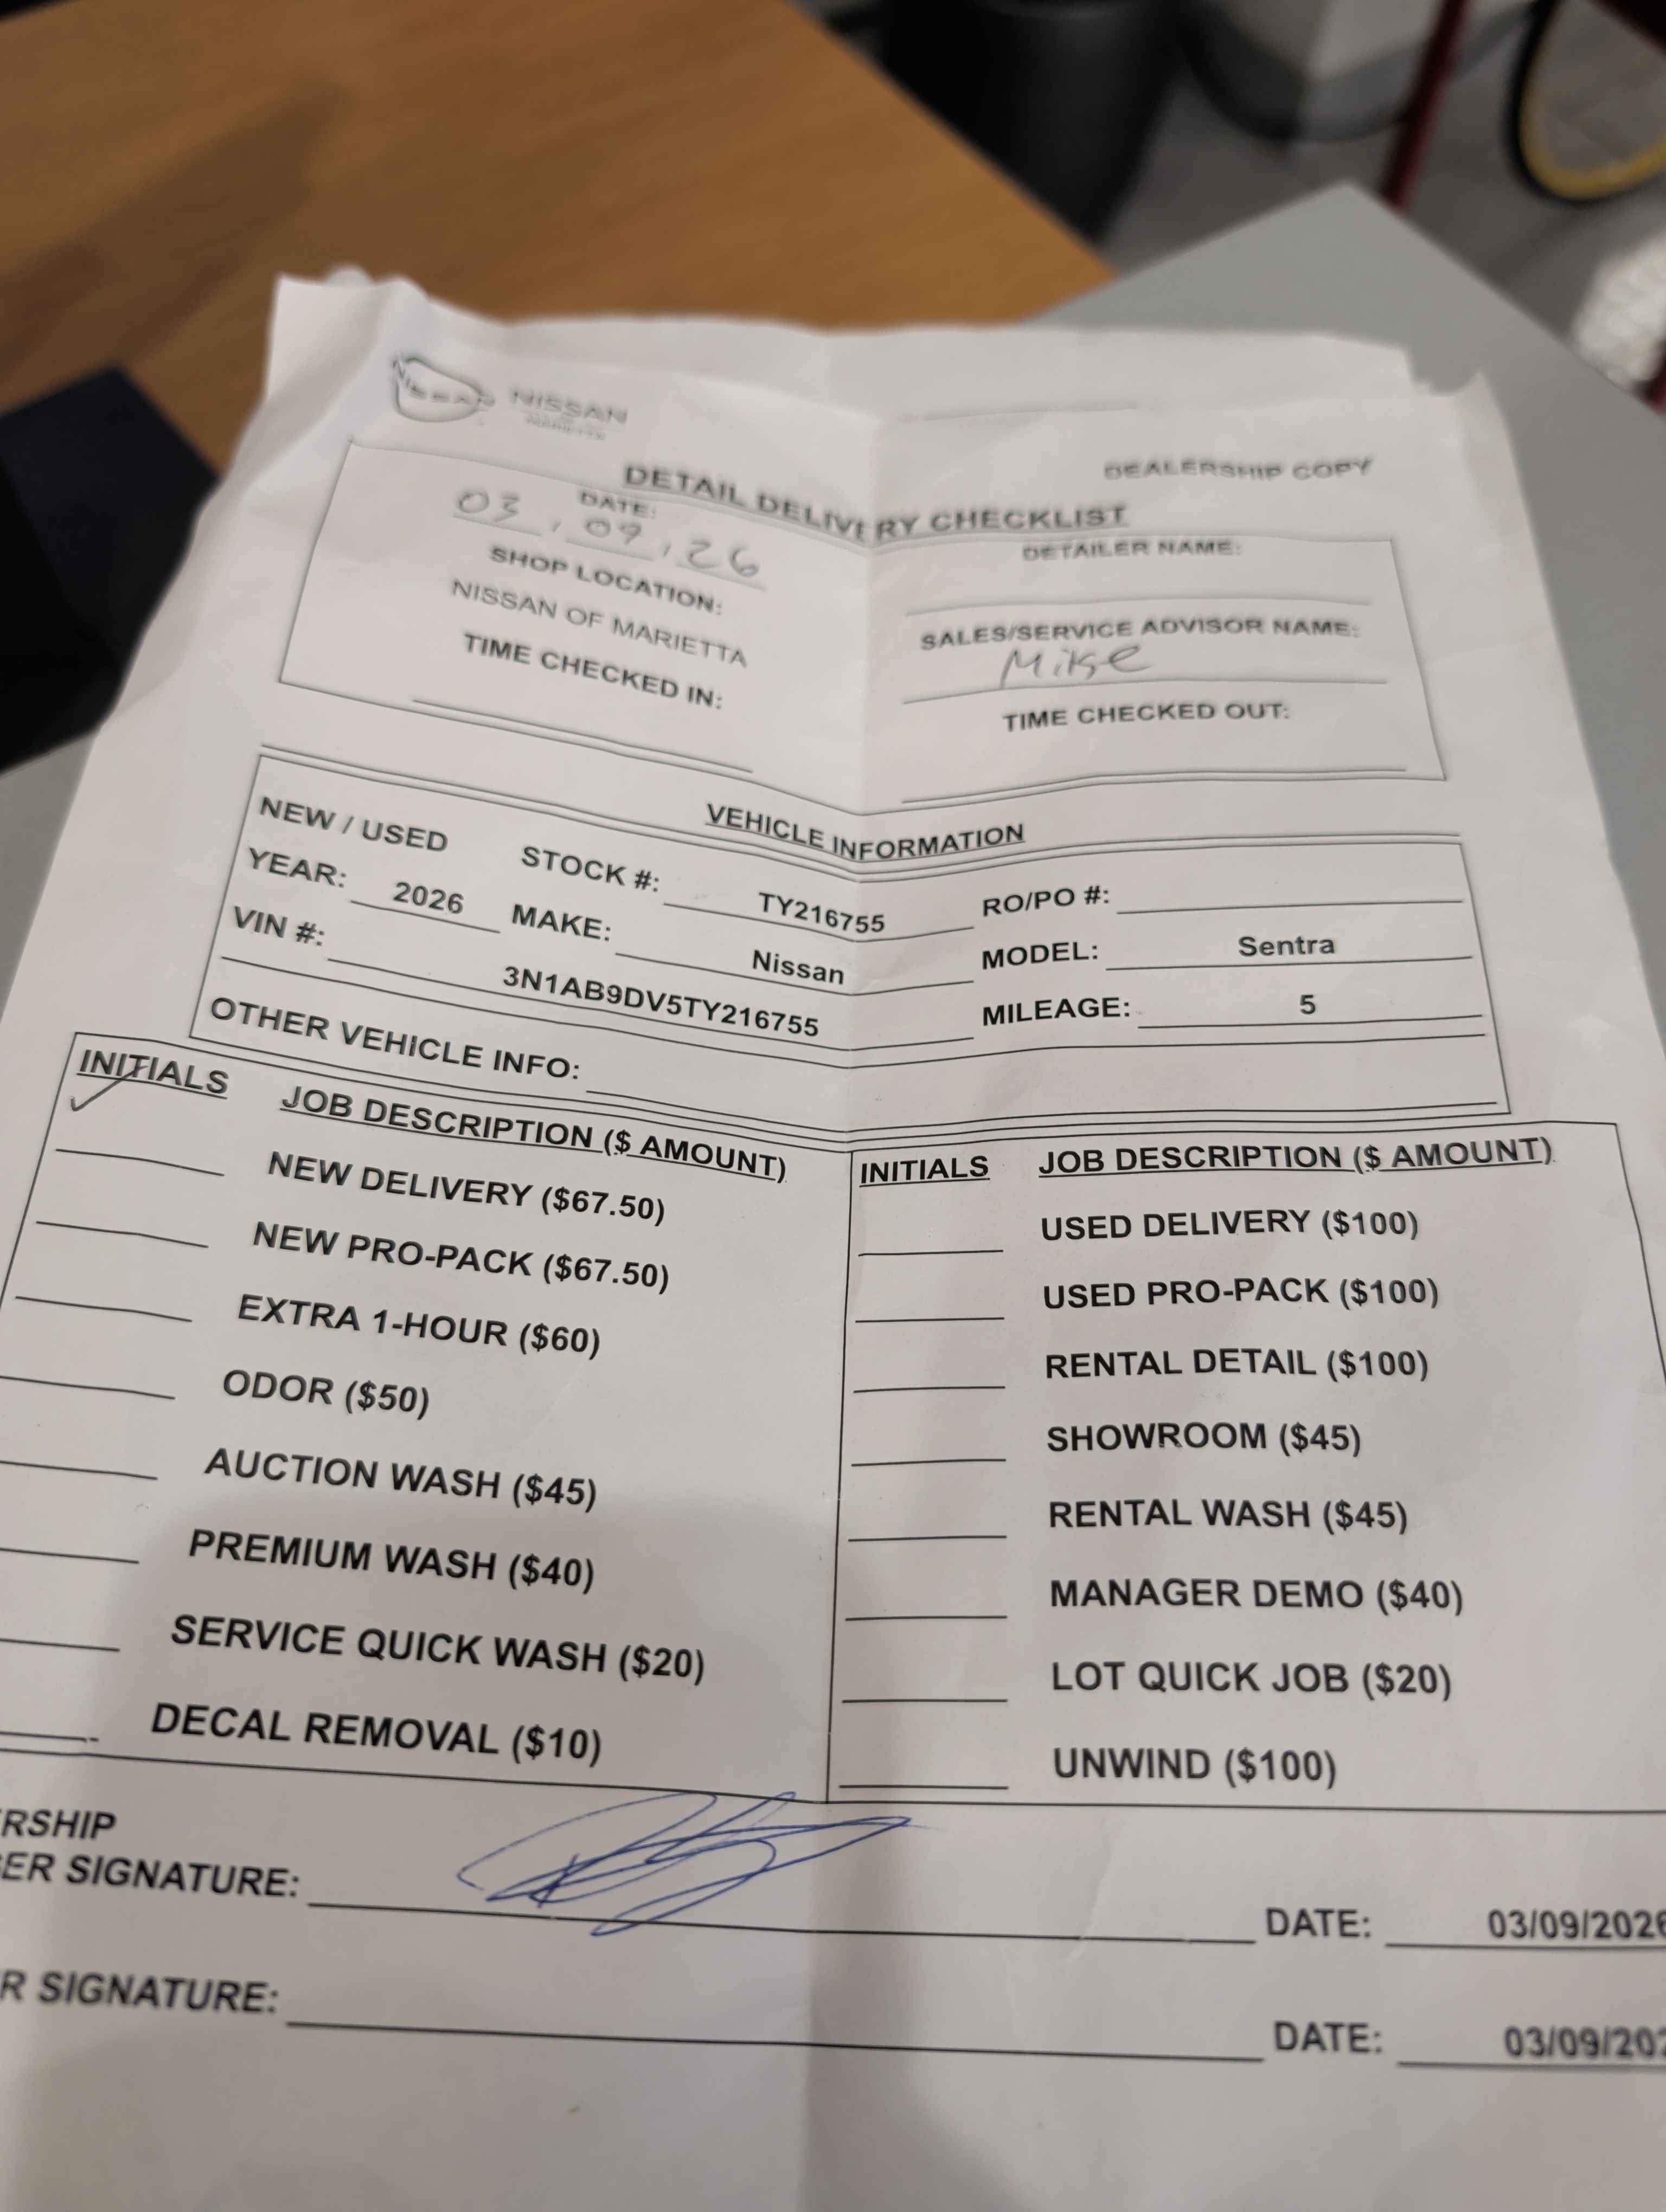 NISSAN NISSAN
OF
MARIETTA
DEALERSHIP COPY
DETAIL DELIVERY CHECKLIST
DATE:
03, 09, 26
SHOP LOCATION:
NISSAN OF MARIETTA
TIME CHECKED IN:
DETAILER NAME:
SALES/SERVICE ADVISOR NAME:
Mike
TIME CHECKED OUT:
VEHICLE INFORMATION
NEW / USED STOCK #: TY216755 RO/PO #:
YEAR: 2026 MAKE: Nissan MODEL: Sentra
VIN #: 3N1AB9DV5TY216755 MILEAGE: 5
OTHER VEHICLE INFO:
INITIALS JOB DESCRIPTION ($ AMOUNT)
✓ NEW DELIVERY ($67.50)
NEW PRO-PACK ($67.50)
EXTRA 1-HOUR ($60)
ODOR ($50)
AUCTION WASH ($45)
PREMIUM WASH ($40)
SERVICE QUICK WASH ($20)
DECAL REMOVAL ($10)
INITIALS JOB DESCRIPTION ($ AMOUNT)
USED DELIVERY ($100)
USED PRO-PACK ($100)
RENTAL DETAIL ($100)
SHOWROOM ($45)
RENTAL WASH ($45)
MANAGER DEMO ($40)
LOT QUICK JOB ($20)
UNWIND ($100)
RSHIP
ER SIGNATURE: DATE: 03/09/2026
R SIGNATURE: DATE: 03/09/202